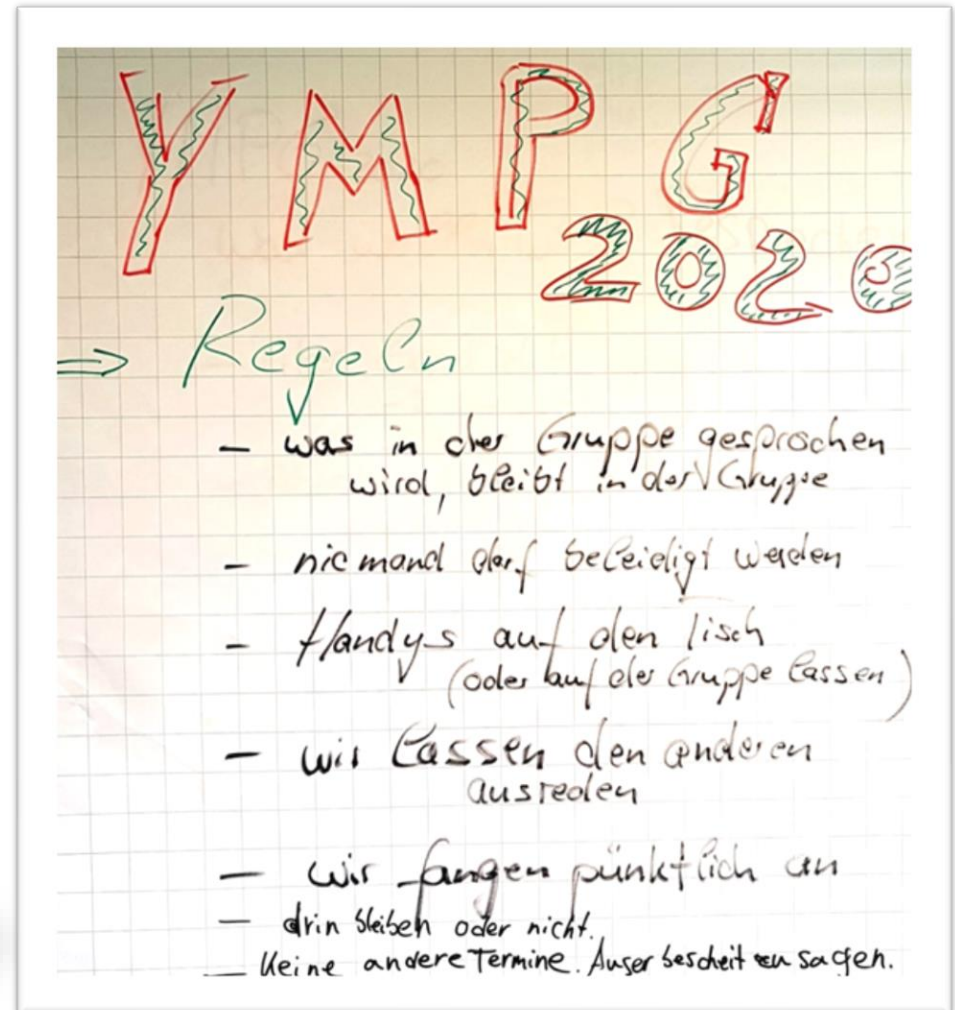 YMPG
2020
⇒ Regeln
– was in der Gruppe gesprochen
wird, bleibt in der Gruppe
– niemand darf beleidigt werden
– Handys auf den Tisch
(oder auf der Gruppe lassen)
– wir lassen den anderen
ausreden
– wir fangen pünktlich an
– drin bleiben oder nicht.
– Keine andere Termine. Auser bescheit zu sagen.